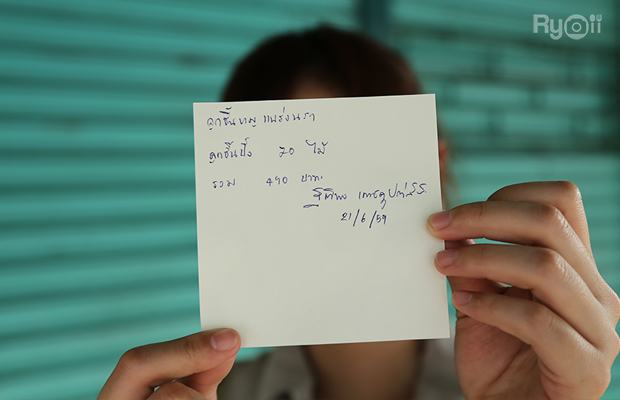 Ryoii
ลูกชิ้นหมู แพร่งนรา
ลูกชิ้นปิ้ง 70 ไม้
รวม 490 บาท
21/6/59